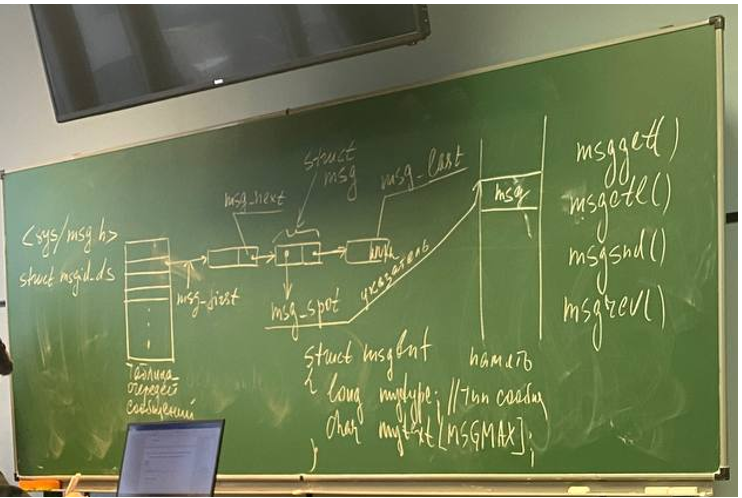 <sys/msg.h>
struct msgid_ds
Таблица
очередей
сообщений
msg_first
msg_next
struct
msg
msg_last
msg_spot
указатель
msg
память
struct msgbuf
{ long mytype; //тип сообщ
char mytext[MSGMAX];
}
msgget()
msgctl()
msgsnd()
msgrcv()